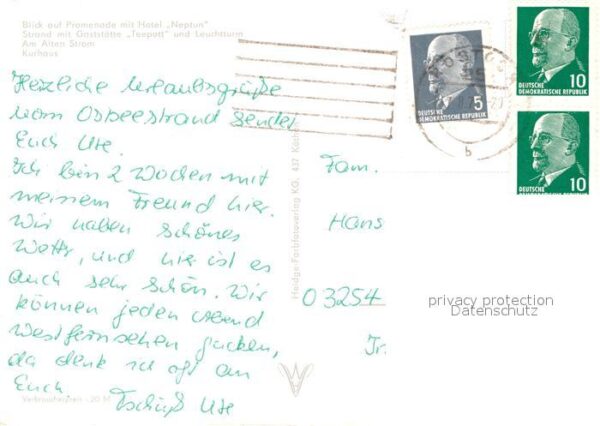 Blick auf Promenade mit Hotel „Neptun"
Strand mit Gaststätte „Teepott" und Leuchtturm
Am Alten Strom
Kurhaus
Herzliche Urlaubsgrüße
vom Ostseestrand sendet
Euch Ute.
Ich bin 2 Wochen mit
meinem Freund hier.
Wir haben schönes
Wettr, und hier ist es
auch sehr schön. Wir
können jeden Abend
Westfernsehen gucken,
da denk ich oft an
Euch.
Tschüß Ute
Verbraucherpreis -20 M
Heldge-Farbfotoverlag KG, 437 Köthen
Fam.
Hans
03254
Tr.
5
DEUTSCHE
DEMOKRATISCHE REPUBLIK
10
DEUTSCHE
DEMOKRATISCHE REPUBLIK
10
DEUTSCHE
DEMOKRATISCHE REPUBLIK
b
privacy protection
Datenschutz